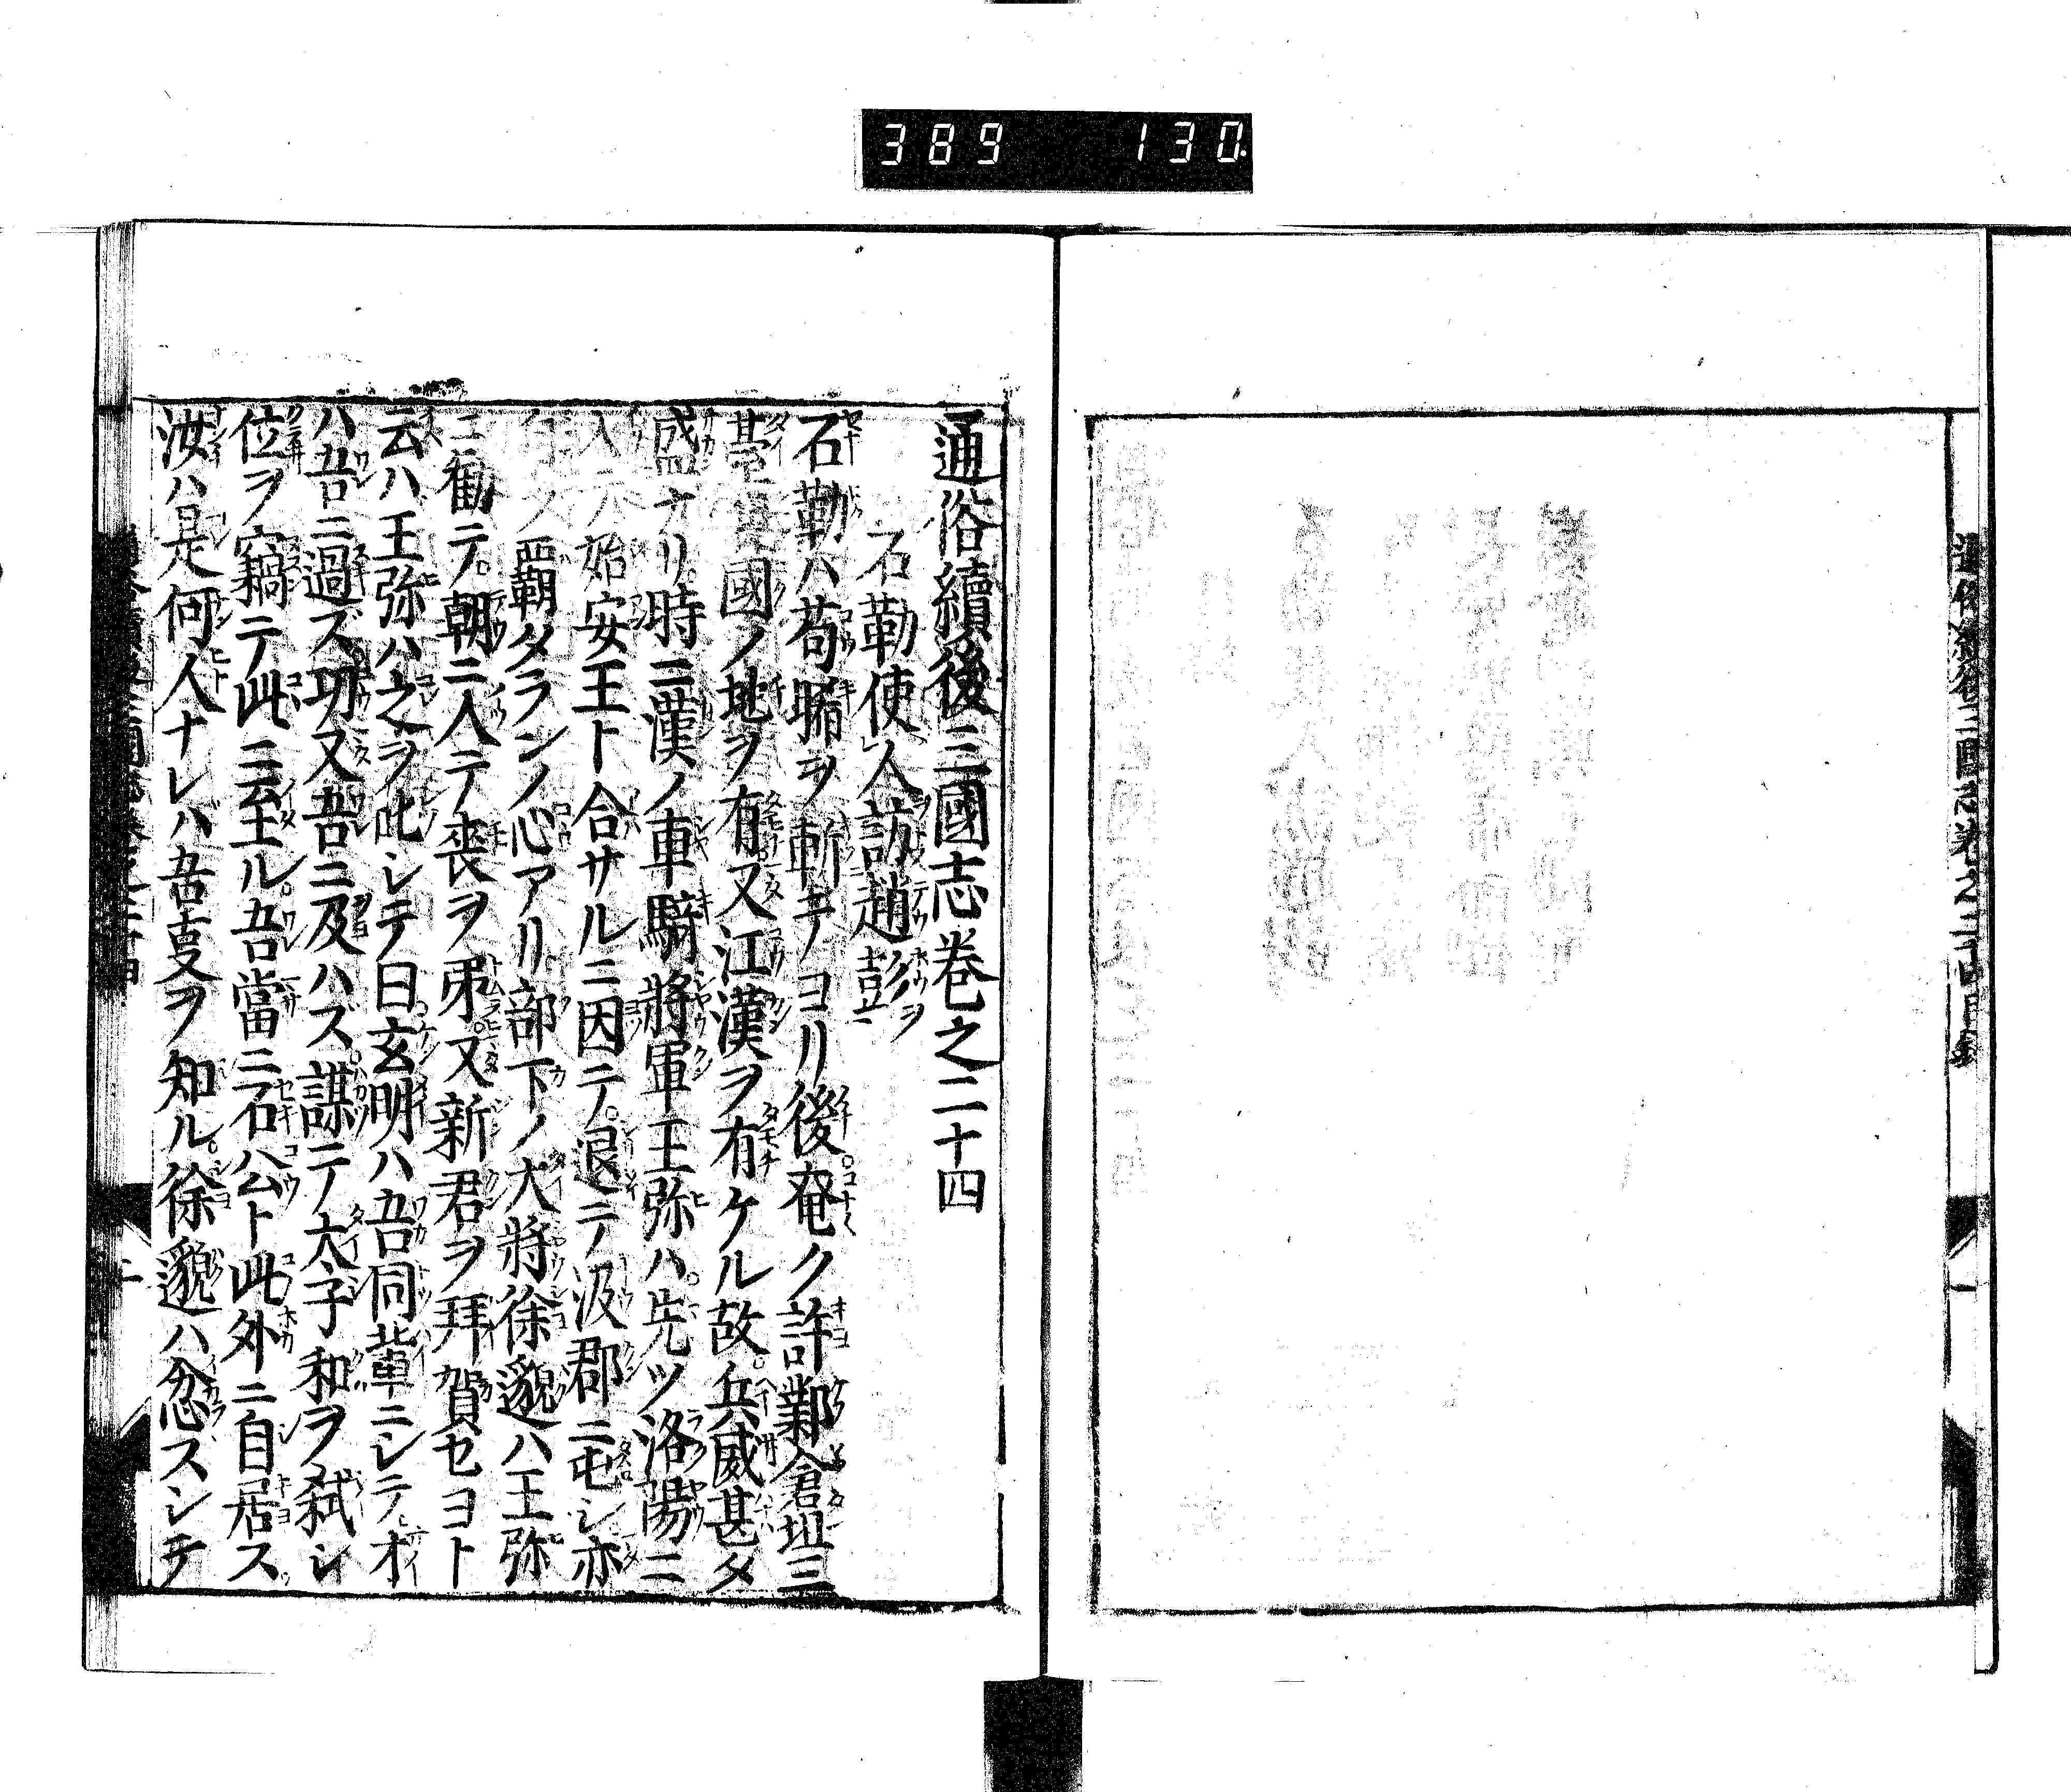 389 130
通俗續後三國志巻之二十四目録
一
通俗續後三國志巻之二十四
石勒使人訪趙彭
石勒ハ苟晞ヲ斬テヨリ後奄ク許鄴倉垣三
臺國ノ地ヲ有又江漢ヲ有ケル故兵威甚タ
盛ナリ時ニ漢ノ車騎將軍王弥ハ先ツ洛陽ニ
入テ始安王ト合サルニ因テ退テ汲郡ニ屯シ亦
覇タランノ心アリ部下ノ大將徐邈ハ王弥
ニ勧テ朝ニ入テ喪ヲ弔又新君ヲ拜賀セヨト
云ハ王弥ハ之ヲ叱シテ曰玄明ハ吾同輩ニシテ才
ハ吾ニ過ズ功又吾ニ及ハズ謀テ太子和ヲ弑シ
位ヲ竊テ此ニ至ル吾當ニ石公ト此外ニ自居ス
汝ハ是何人ナレハ吾叓ヲ知ル徐邈ハ忿スシテ